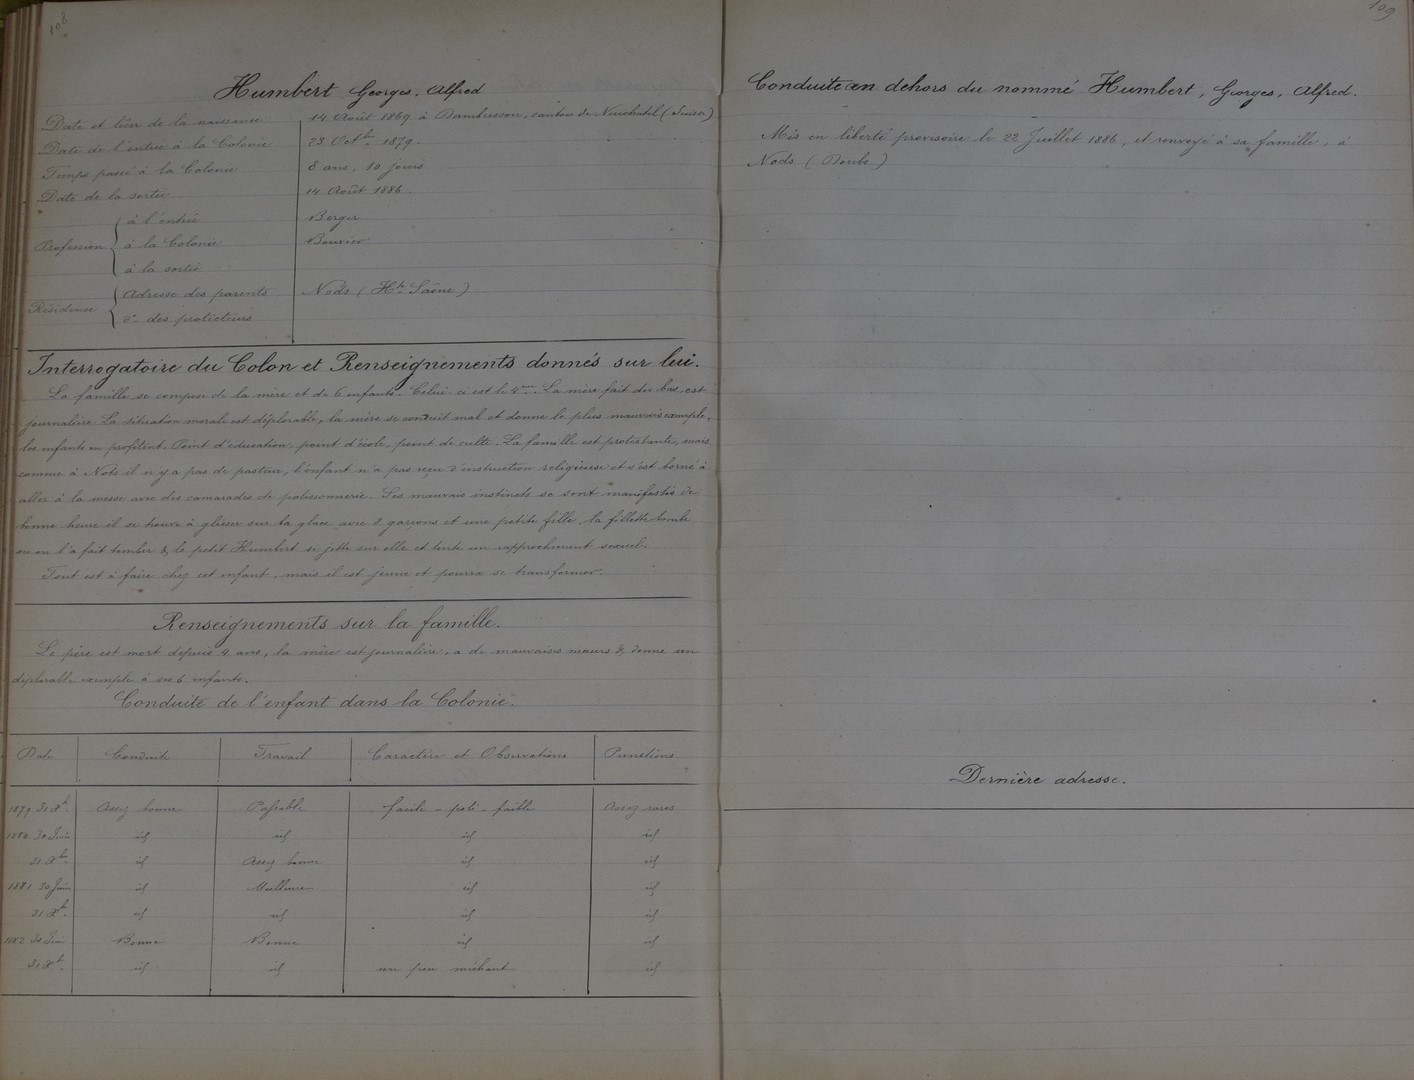 108
Humbert Georges. Alfred
Date et lieu de la naissance 14 Août 1869 à Dombresson, canton de Neuchatel (Suisse)
Date de l'entrée à la Colonie 23 Octbre 1879.
Temps passé à la Colonie 8 ans, 10 jours
Date de la sortie 14 Août 1886
Profession à l'entrée Berger
à la Colonie Bouvier
à la sortie
Résidence Adresse des parents Nods (Hte Saône)
do des protecteurs
Interrogatoire du Colon et Renseignements donnés sur lui.
La famille se compose de la mère et de 6 enfants. Celui-ci est le 4me. La mère fait des bas, est
journalière. La situation morale est déplorable, la mère se conduit mal et donne le plus mauvais exemple,
les enfants en profitent. Point d'éducation, point d'école, point de culte. La famille est protestante, mais
comme à Nods il n'y a pas de pasteur, l'enfant n'a pas reçu d'instruction religieuse et s'est borné à
aller à la messe avec des camarades de polissonnerie. Ses mauvais instincts se sont manifestés de
bonne heure il se trouve à glisser sur la glace avec 2 garçons et une petite fille, la fillette tombe
ou on l'a fait tomber & le petit Humbert se jette sur elle et tente un rapprochement sexuel.
Tout est à faire chez cet enfant, mais il est jeune et pourra se transformer.
Renseignements sur la famille.
Le père est mort depuis 4 ans, la mère est journalière, a de mauvaises mœurs & donne un
déplorable exemple à ses 6 enfants.
Conduite de l'enfant dans la Colonie.
Date Conduite Travail Caractère et Observations Punitions
1879 31 Xbre Assez bonne Passable facile - poli - faible Assez rares
1880 30 Juin id id id id
31 Xbre id Assez bonne id id
1881 30 Juin id Meilleure id id
31 Xbre id id id id
1882 30 Juin Bonne Bonne id id
31 Xbre id id un peu méchant id
109
Conduite en dehors du nommé Humbert, Georges, Alfred.
Mis en liberté provisoire le 22 Juillet 1886, et renvoyé à sa famille, à
Nods (Doubs)
Dernière adresse.